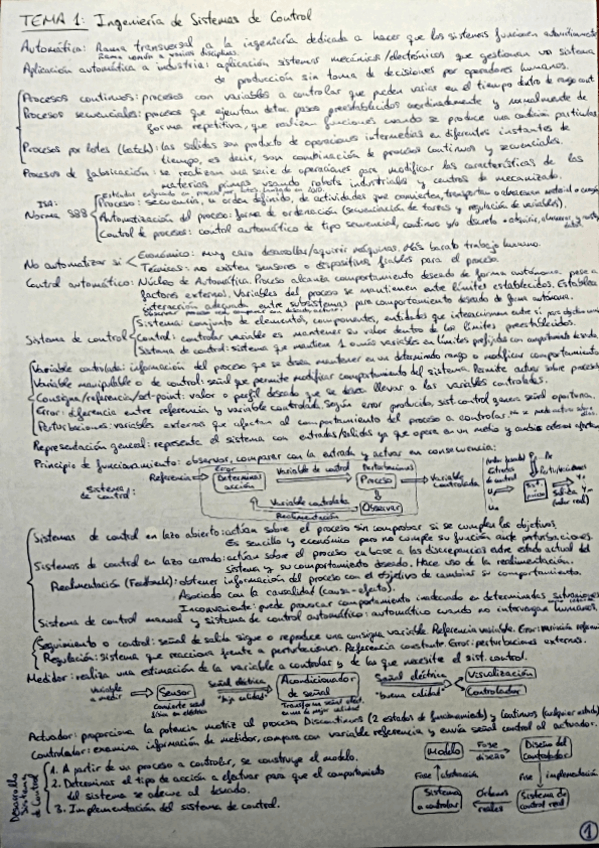 TEMA 1: Ingeniería de Sistemas de Control
Automática: Rama transversal a la ingeniería dedicada a hacer que los sistemas funcionen autónomamente
Rama común a varias disciplinas.
Aplicación automática a industria: aplicación sistemas mecánicos/electrónicos que gestionan un sistema
de producción sin toma de decisiones por operadores humanos.
Procesos continuos: procesos con variables a controlar que pueden variar en el tiempo dentro de rango cont
Procesos secuenciales: procesos que ejecutan determ. pasos preestablecidos coordinadamente y usualmente de
forma repetitiva, que realizan funciones cuando se produce una cadena particular
Procesos por lotes (batch): las salidas son producto de operaciones intermedias en diferentes instantes de
tiempo, es decir, son combinación de procesos continuos y secuenciales.
Procesos de fabricación: se realizan una serie de operaciones para modificar las características de las
materias primas usando robots industriales y centros de mecanizado.
ISA:
Norma S88
Proceso: secuencia, u orden definido, de actividades que convierten, transportan o almacenan material o energía
Automatización del proceso: forma de ordenación (secuenciación de tareas y regulación de variables).
Control de procesos: control automático de tipo secuencial, continuo y/o discreto + adquirir, almacenar y mostrar datos
No automatizar si
Económico: muy caro desarrollar/adquirir máquinas. Más barato trabajo humano.
Técnicas: no existen sensores o dispositivos fiables para el proceso
Control automático: Núcleo de Automática. Proceso alcanza comportamiento deseado de forma autónoma pese a
factores externos. Variables del proceso se mantienen entre límites establecidos. Establece
interacción adecuada entre subsistemas para comportamiento deseado de forma autónoma.
Sistema de control
Sistema: conjunto de elementos, componentes, entidades que interaccionan entre sí para objetivo común
Control: controlar variable es mantener su valor dentro de los límites preestablecidos.
Sistema de control: sistema que mantiene 1 o más variables en límites prefijados con comportamiento deseado
Variable controlada: información del proceso que se desea mantener en un determinado rango o modificar comportamiento
Variable manipulable o de control: señal que permite modificar comportamiento del sistema. Permite actuar sobre proceso
Consigna/referencia/set-point: valor o perfil deseado que se desea llevar a las variables controladas.
Error: diferencia entre referencia y variable controlada. Según error producido, sist. control genera señal oportuna.
Perturbaciones: variables externas que afectan al comportamiento del proceso a controlar.
Representación general: representa el sistema con entradas/salidas ya que opera en un medio y
Principio de funcionamiento: observar, comparar con la entrada y actuar en consecuencia:
Sistema de control:
Referencia
Error
Determinar acción
Variable de control
Perturbaciones
Proceso
Variable controlada
Variable controlada
Realimentación
Observar
Entradas de control
Perturbaciones
Salidas
Sistemas de control en lazo abierto: actúan sobre el proceso sin comprobar si se cumplen los objetivos.
Es sencillo y económico pero no cumple su función ante perturbaciones.
Sistemas de control en lazo cerrado: actúan sobre el proceso en base a las discrepancias entre estado actual del
sistema y su comportamiento deseado. Hace uso de la realimentación.
Realimentación (Feedback): obtener información del proceso con el objetivo de cambiar su comportamiento.
Asociado con la causalidad (causa-efecto).
Inconveniente: puede provocar comportamiento inadecuado en determinadas situaciones
Sistema de control manual y sistema de control automático: automático cuando no intervengan humanos.
Seguimiento o control: señal de salida sigue o reproduce una consigna variable. Referencia variable. Error: variación referencia
Regulación: sistema que reacciona frente a perturbaciones. Referencia constante. Error: perturbaciones externas.
Medidor: realiza una estimación de la variable a controlar y de las que necesite el sist. control.
Variable a medir
Sensor
Convierte señal física en eléctrica
Señal eléctrica
"baja calidad"
Acondicionador de señal
Transforma señal elect. en una de mejor calidad
Señal eléctrica
"buena calidad"
Visualización
Controlador
Actuador: proporciona la potencia motriz al proceso. Discontinuos (2 estados de funcionamiento) y Continuos (cualquier estado)
Controlador: examina información de medidor, compara con variable referencia y envía señal control al actuador.
Desarrollo Sistema de Control
1. A partir de un proceso a controlar, se construye el modelo.
2. Determinar el tipo de acción a efectuar para que el comportamiento
del sistema se adecue al deseado.
3. Implementación del sistema de control.
Modelo
Fase diseño
Diseño del controlador
Fase abstracción
Fase implementación
Sistema a controlar
Ordenes reales
Sistema de control real
1